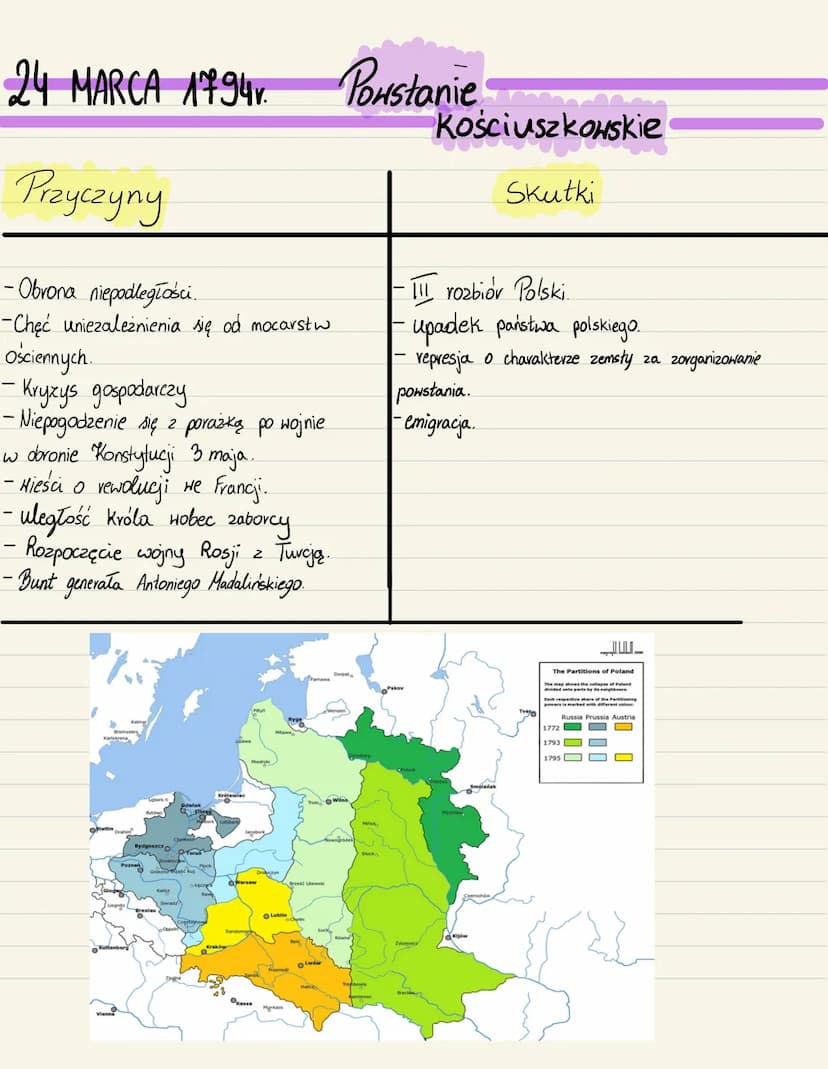 24 MARCA 1794r. Powstanie
Kościuszkowskie
Przyczyny
- Obrona niepodległości.
- Chęć uniezależnienia się od mocarstw
Ościennych.
- Kryzys gospodarczy
- Niepogodzenie się z porażką po wojnie
w obronie Konstytucji 3 maja.
- Wieści o rewolucji we Francji.
- uległość króla wobec zaborcy
- Rozpoczęcie wojny Rosji z Turcją.
- Bunt generała Antoniego Madalińskiego.
Skutki
- III rozbiór Polski.
- upadek państwa polskiego.
- represja o charakterze zemsty za zorganizowanie
powstania.
- emigracja.
The Partitions of Poland
The map shows the collapse of Poland
divided onto parts by its neighbours.
Each respective share of the Partitioning
powers is marked with different colour.
Russia Prussia Austria
1772
1793
1795
Pskov
Parnawa
Dorpat
Ryga
Mitawa
Kalmar
Karlskrona
Smoleńsk
Królewiec
Wilno
Gdańsk
Elbląg
Mińsk
Bydgoszcz
Toruń
Poznań
Płock
Warsaw
Brześć Litewski
Wreslau
Lublin
Chełm
Sandomierz
Kraków
Lwów
Kijów
Kuttenberg
Vienna
Kassa
Munkacs